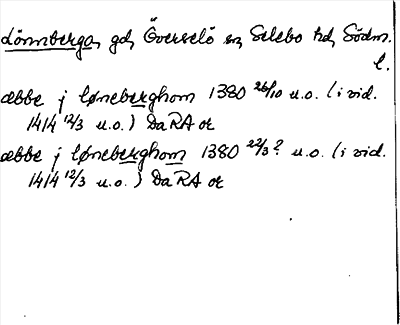 Lönnberga, gd, Överselö sn, Selebo hd, Södm.
l.
æbbe j løneberghom 1380 26/10 u.o. (i vid.
1414 12/3 u.o.) DaRA or
æbbe j løneberghom 1380 22/3? u.o. (i vid.
1414 12/3 u.o.) DaRA or